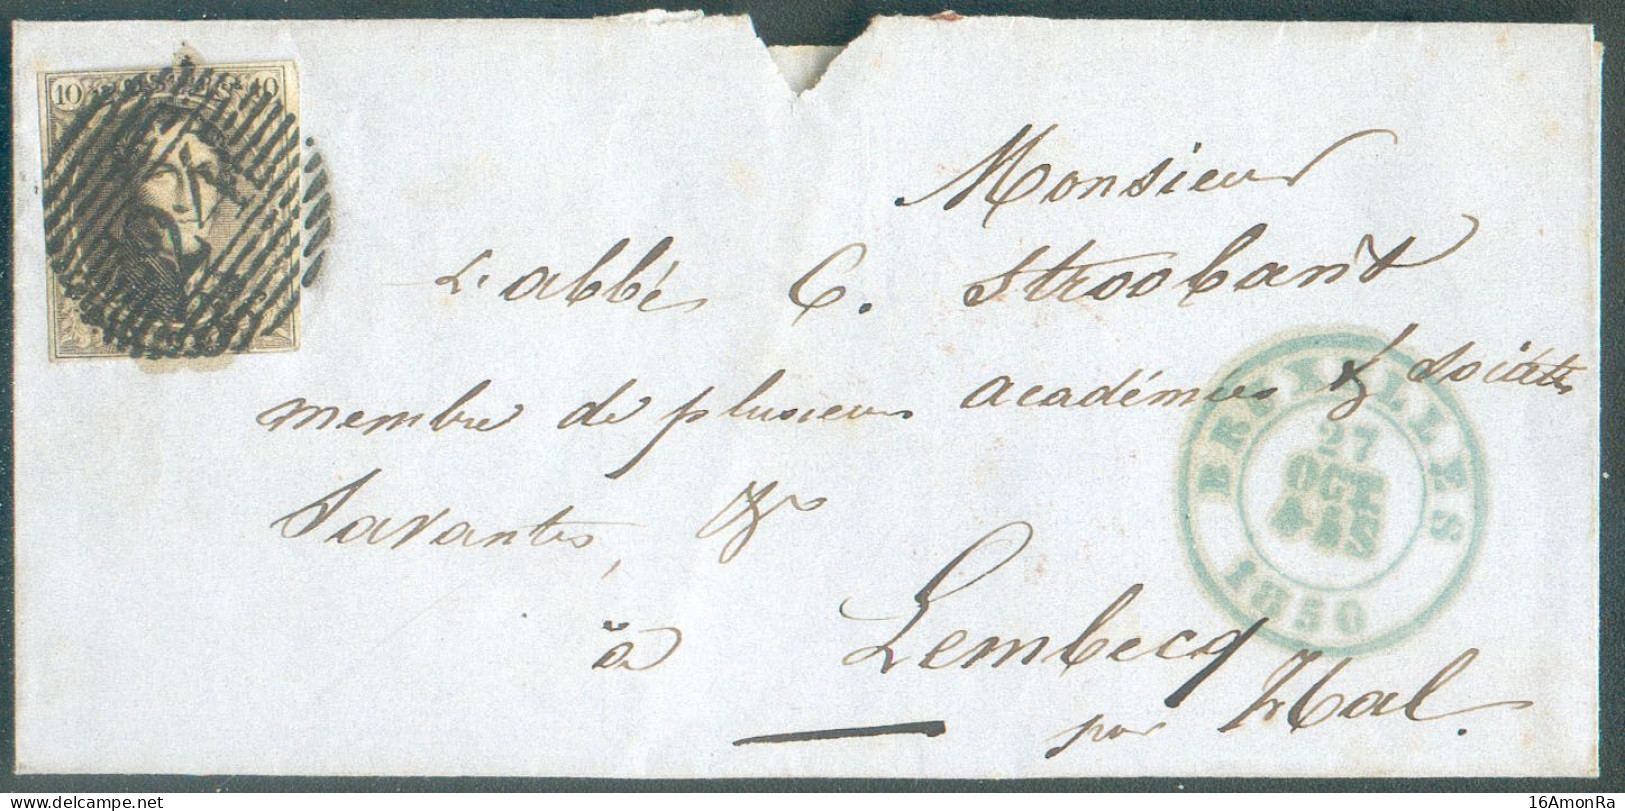 10 10
Monsieur
L'abbé C. Stroobant
membre de plusieurs académies & sociétés
Savantes, &
à
Lembecq
par Hal.
BRUXELLES
27
OCT
1850
16AmonRa